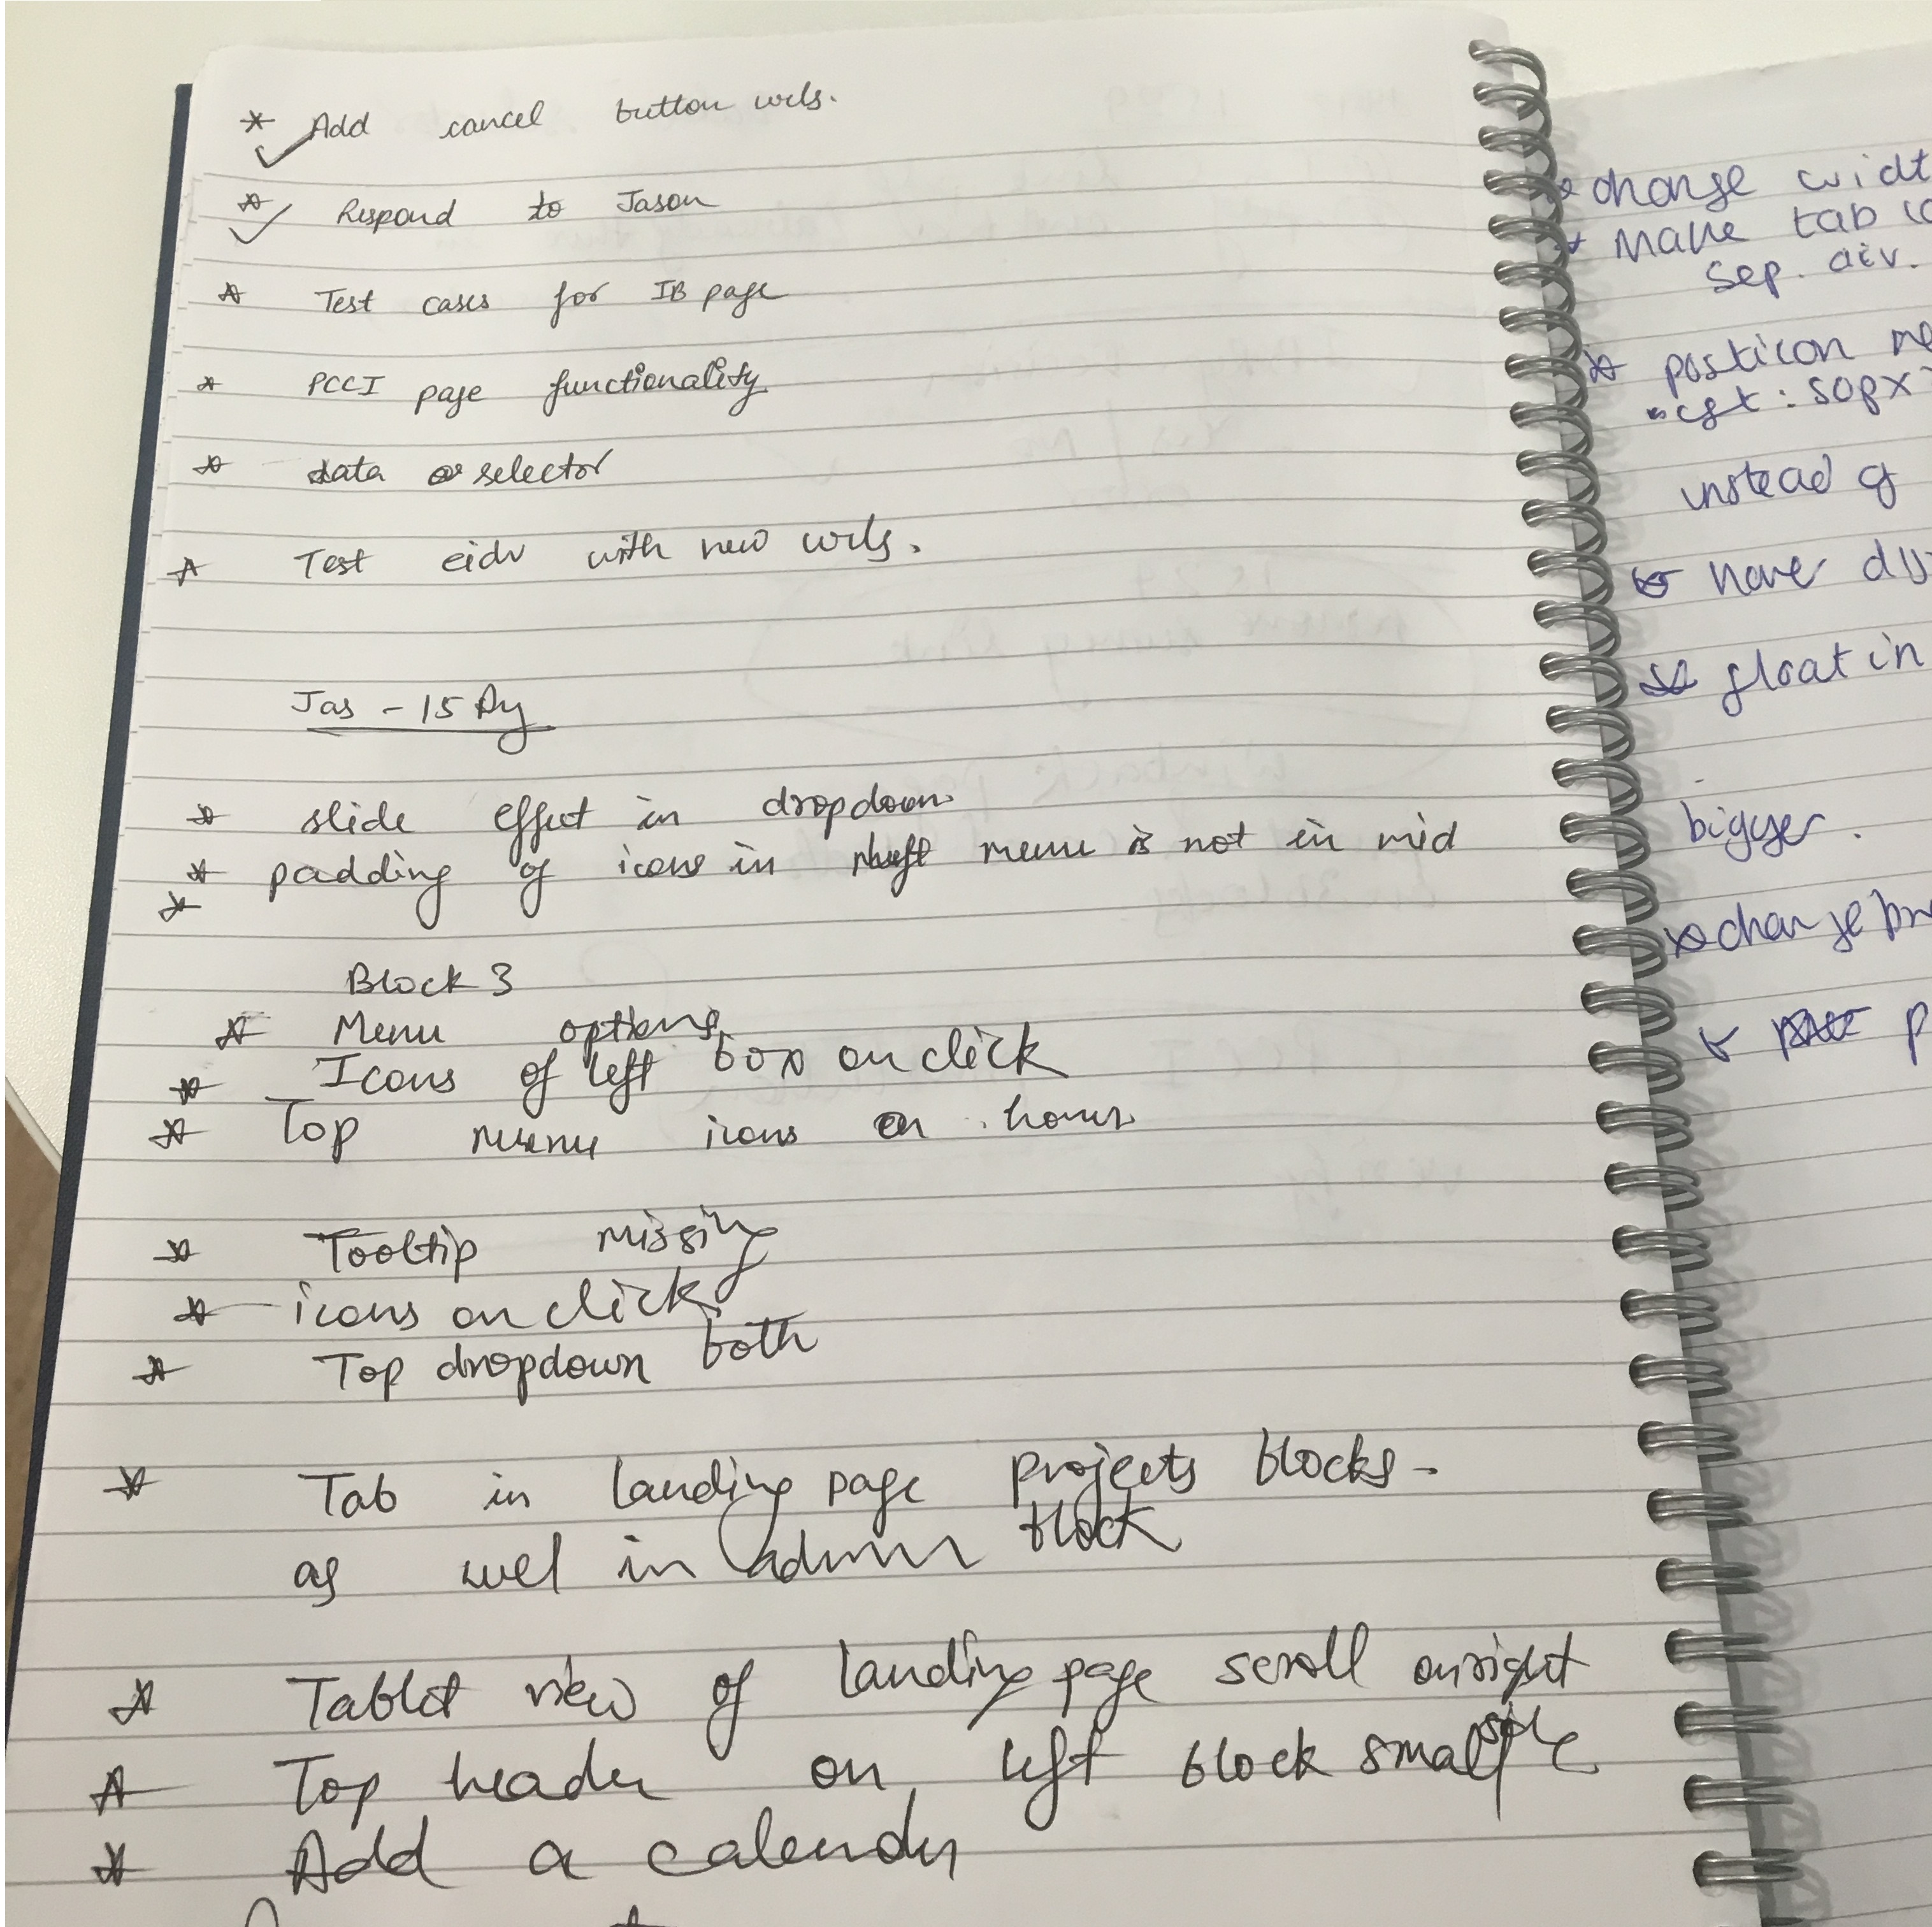 * Add cancel button wrls.
* Respond to Jason
* Test cases for IB page
* PCCI page functionality
* data selector
* Test eidv with new wrls.
Jas - 15
* slide effect in dropdown.
* padding of icons in left menu is not in mid
*
Block 3
* Menu options
* Icons of left box on click
* Top menu icons on hover.
* Tooltip missing
* icons on click
* Top dropdown both
* Tab in landing page projects blocks -
as wel in block
* Tablet view of landing page scroll on right
* Top header on left block small
* Add a calendr
* change widt
* Make tab
sep. div.
* position
instead of
* have
* float in
bigger.
* change